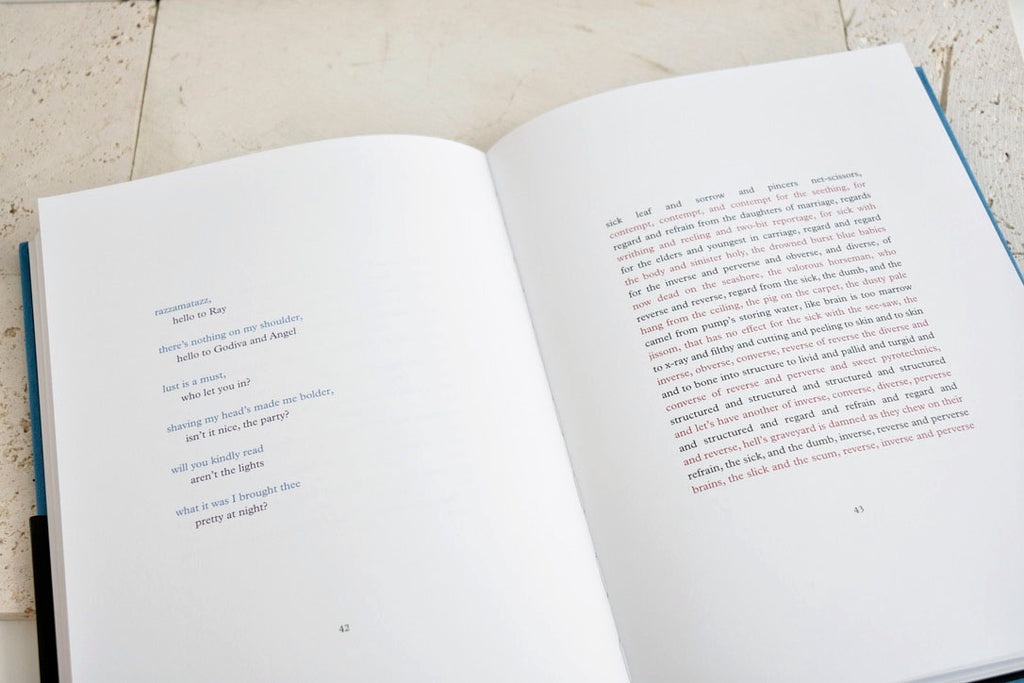 razzamatazz,
hello to Ray
there's nothing on my shoulder,
hello to Godiva and Angel
lust is a must,
who let you in?
shaving my head's made me bolder,
isn't it nice, the party?
will you kindly read
aren't the lights
what it was I brought thee
pretty at night?
42
sick leaf and sorrow and pincers net-scissors,
contempt, contempt, and contempt for the seething, for
regard and refrain from the daughters of marriage, regards
writhing and reeling and two-bit reportage, for sick with
for the elders and youngest in carriage, regard and regard
the body and sinister holy, the drowned burst blue babies
for the inverse and perverse and obverse, and diverse, of
now dead on the seashore, the valorous horseman, who
reverse and reverse, regard from the sick, the dumb, and the
hang from the ceiling, the pig on the carpet, the dusty pale
camel from pump's storing water, like brain is too marrow
jissom, that has no effect for the sick with the see-saw, the
to x-ray and filthy and cutting and peeling to skin and to skin
inverse, obverse, converse, reverse of reverse the diverse and
and to bone into structure to livid and pallid and turgid and
converse of reverse and perverse and sweet pyrotechnics,
structured and structured and structured and structured
and let's have another of inverse, converse, diverse, perverse
and structured and regard and refrain and regard and
and reverse, hell's graveyard is damned as they chew on their
refrain, the sick, and the dumb, inverse, reverse and perverse
brains, the slick and the scum, reverse, inverse and perverse
43